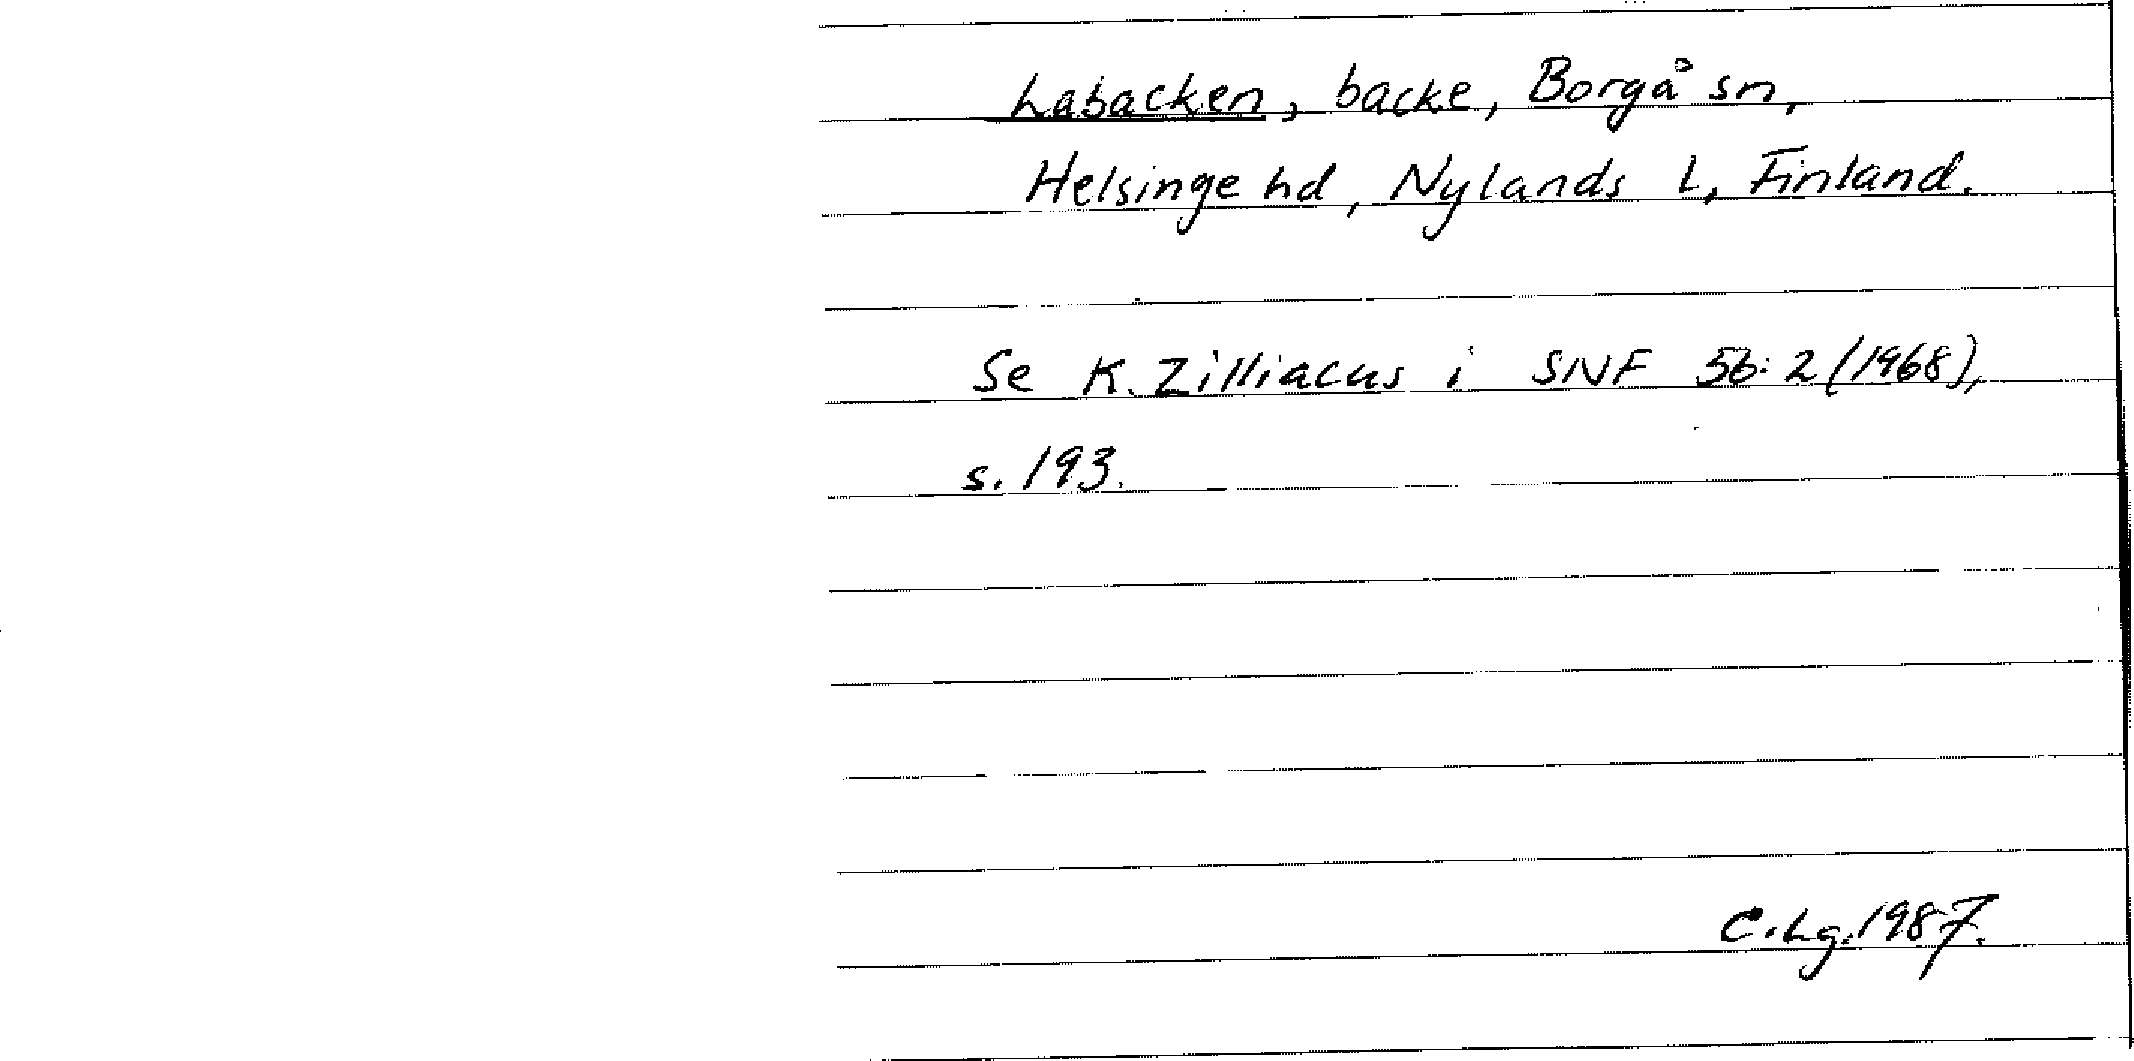 Labacken, backe, Borgå sn,
Helsinge hd, Nylands L, Finland.
Se K. Zilliacus i SNF 56:2 (1968),
s. 193.
C.Lg. 1987.